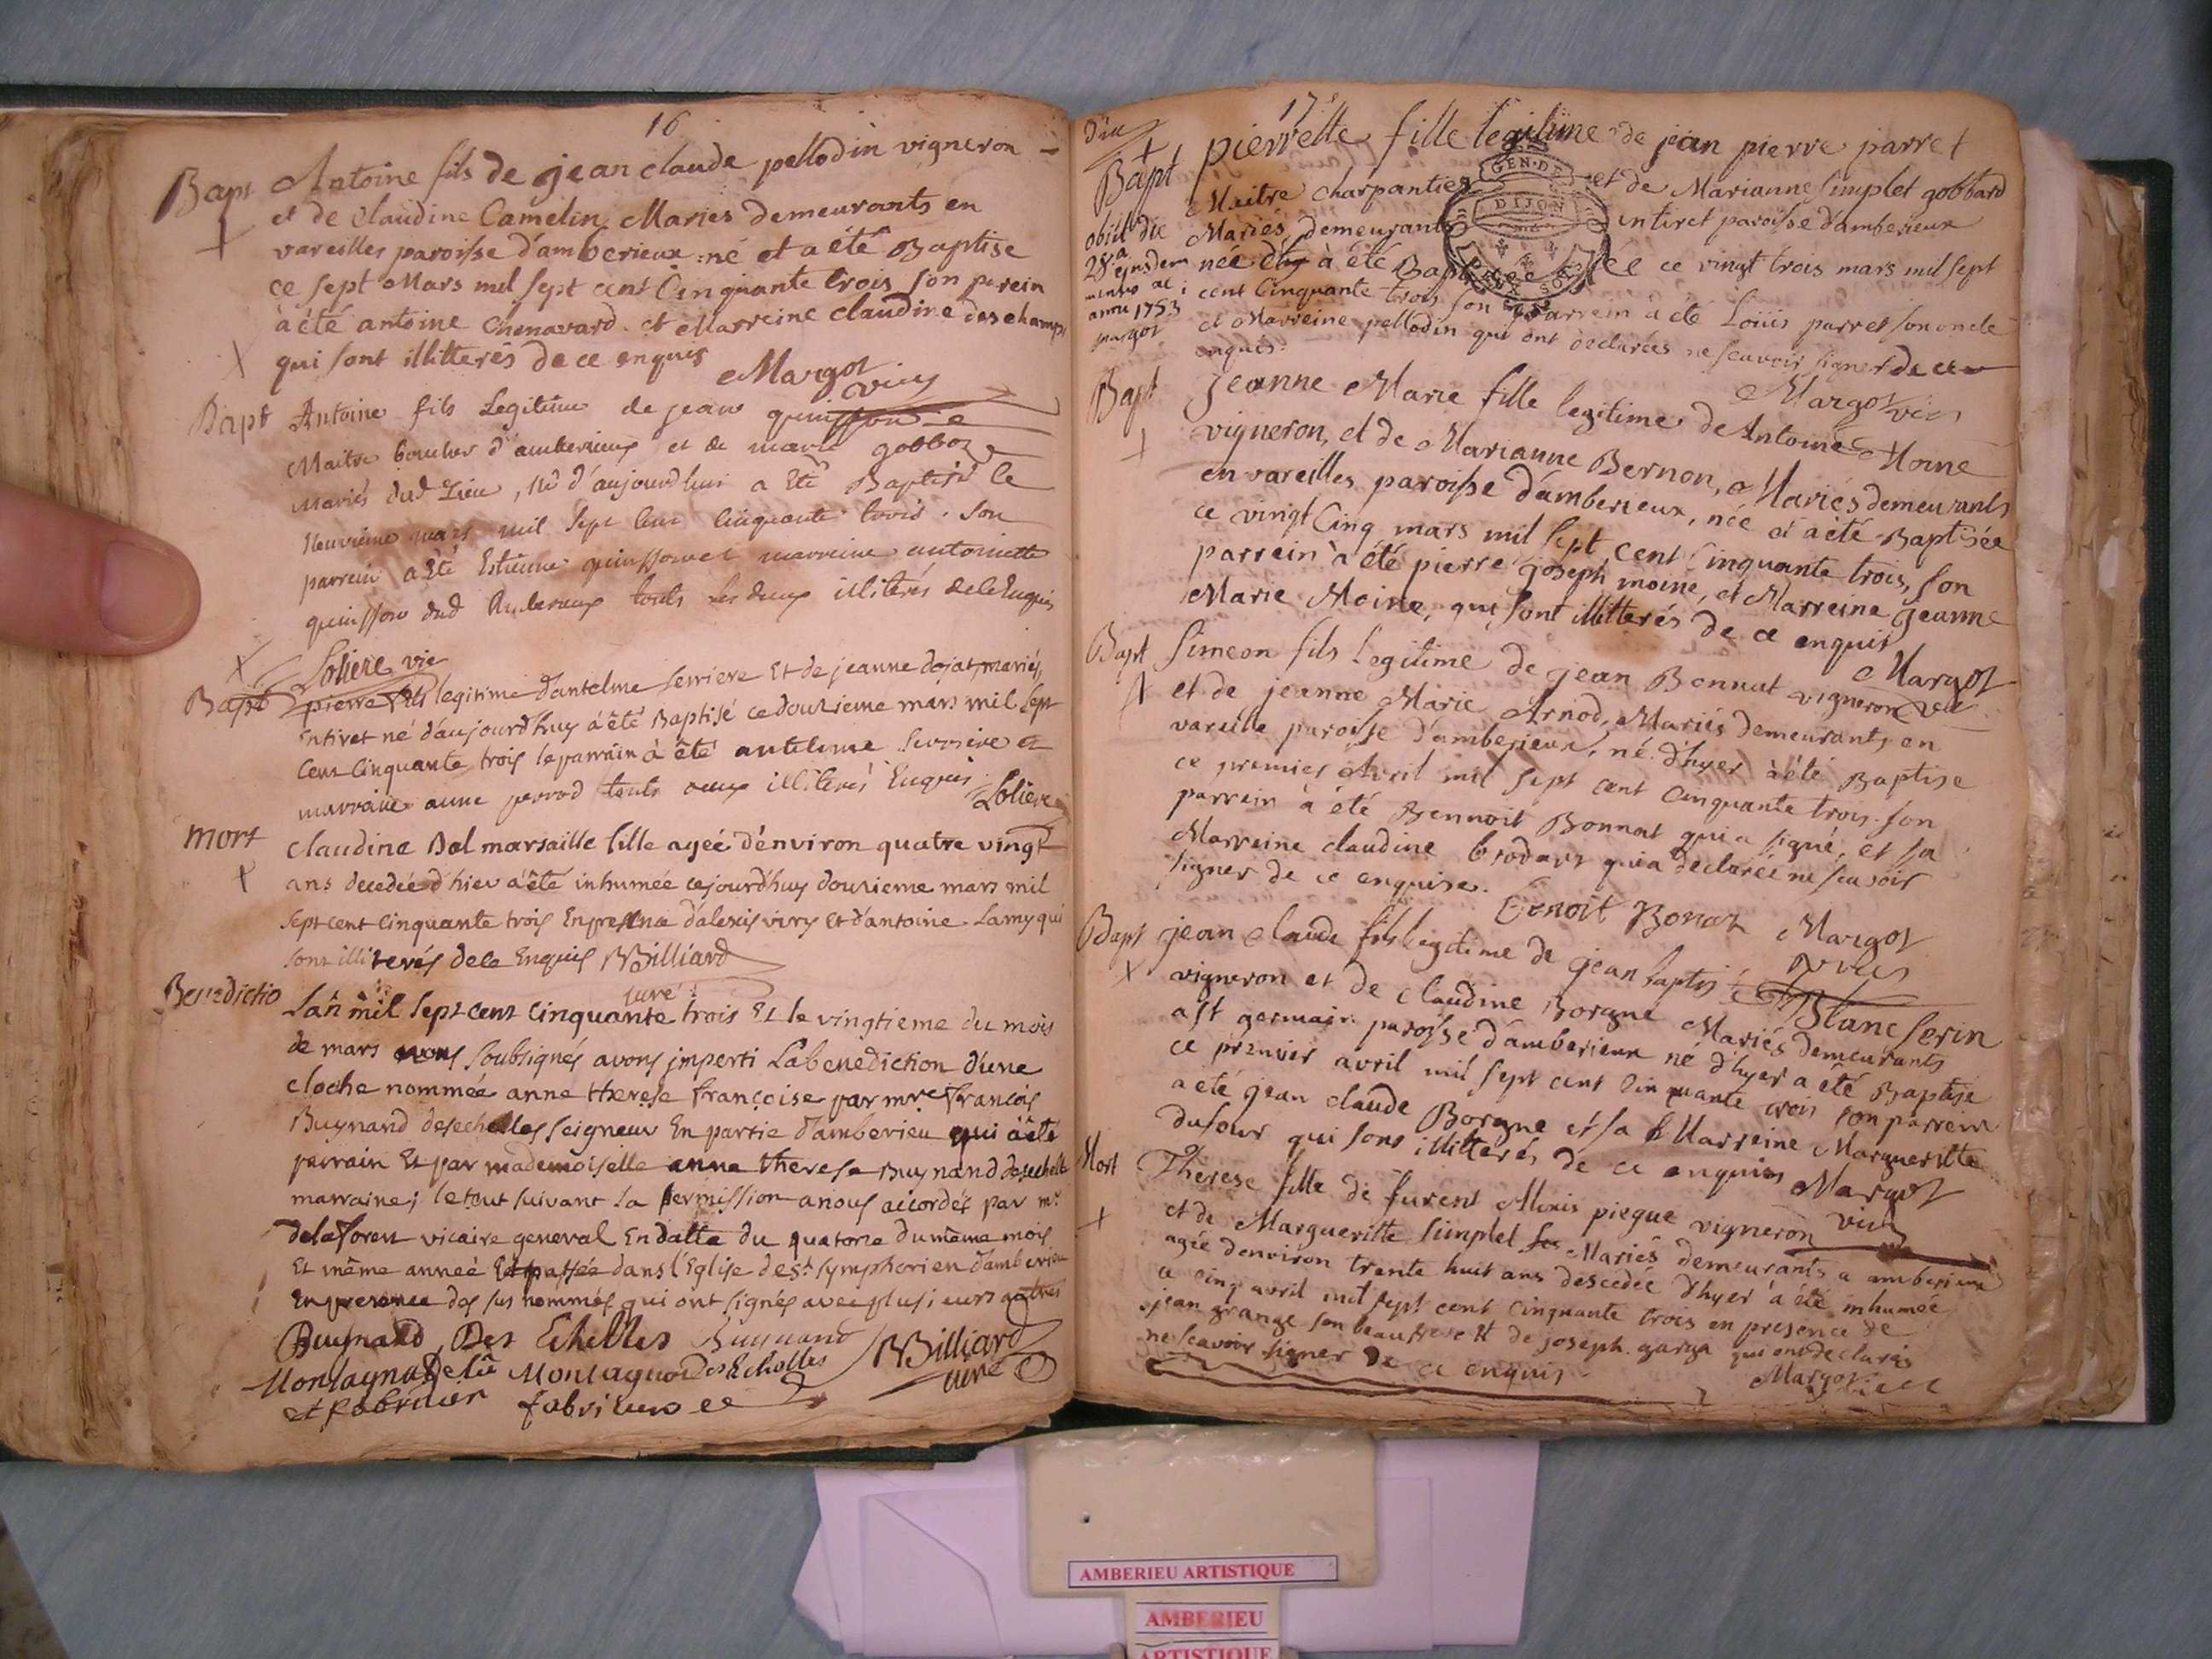 16
Bapt Antoine fils de jean claude pellodin vigneron
et de claudine Camelin Mariés demeurants en
vareilles paroisse d'amberieux né et a été Baptise
ce sept Mars mil sept cent Cinquante trois son parein
à été antoine Chenavard et Marreine claudine deschamps
qui sont illitterés de ce enquis Margot
vic
Bapt Antoine fils Legitime de jean quinsson
Maitre boucher d'amberieux et de marie gobboz
mariés dud Lieu, né d'aujourdhui a été Baptisé le
neuvieme mars mil sept cent cinquante trois. son
parrein a été Estienne quinsson et marreine antoinette
quinsson dud Amberieux touts les deux illiterés de ce Enquis
Soliere vic
Bapt pierre fils legitime d'antelme serriere Et de jeanne dojat mariés
Entiret né d'aujourdhuy à été Baptisé ce douzieme mars mil sept
Cent Cinquante trois le parrain à été antelme serriere et
marraine anne perrod touts deux illiterés Enquis Soliere
mort claudine Bal marsaille fille agée d'environ quatre vingt
ans decedée d'hier a été inhumée cejourd'huy douzieme mars mil
sept cent cinquante trois En presence d'alexis et d'antoine Lamy qui
sont illiterés de ce Enquis Billiard
curé
Benedictio L'an mil sept cent Cinquante trois Et le vingtieme du mois
de mars nous soubsignés avons imperti La benediction d'une
cloche nommée anne therese françoise par mre françois
Buynand desechelles seigneur En partie d'amberieu qui à été
parrain Et par mademoiselle anne therese Buynand desechelles
marraine; le tout suivant la permission a nous accordés par mr
delaforest vicaire general En datte du quatorze du même mois
Et même anneé Et passée dans l'Eglise de st symphorien d'amberieu
En presence des sus nommés qui ont signés avec plusieurs autres
Buynand Des Echelles Buynand Billiard
Montagnat Montagnat Des Echelles curé
et fabricien fabricien
17e
Bapt pierrette fille legitime de jean pierre parret
Maitre charpantier et de Marianne simplet gobbard
Mariés demeurants entiret paroisse d'amberieux
née à été Baptisée ce vingt trois mars mil sept
cent Cinquante trois son parrein à été Loüis parret son oncle
et Marreine pellodin qui ont declarées ne scavoir signer de ce
enquis.
Margot vic
obiit die
28a
ejusdem
mensis ac
anni 1753
margot
GEN. DE
DIJON
Bapt Jeanne Marie fille legitime de Antoine Moine
vigneron, et de Marianne Bernon, Mariés demeurants
en vareilles paroisse d'amberieux, née et a été Baptisée
ce vingt Cinq mars mil sept cent Cinquante trois, son
parrein à été pierre joseph moine, et Marreine jeanne
Marie Moine, qui sont illitterés de ce enquis
Margot
vic
Bapt Simeon fils legitime de jean Bonnat vigneron
et de jeanne Marie Arnod, Mariés demeurants en
vareille paroisse d'amberieux, né d'hyer à été Baptise
ce premier Avril mil sept cent cinquante trois. son
parrein à été Bennoit Bonnat qui a signé, et sa
Marreine claudine brodart qui a declareé ne scavoir
signer de ce enquise.
Benoit Bonat Margot
vic
Bapt jean claude fils legitime de jean baptiste Blanc serin
vigneron et de claudine Borgne Mariés demeurants
a st germain paroisse d'amberieux né d'hyer a été Baptisé
ce premier avril mil sept cent cinquante trois son parrein
a été jean claude Borgne et sa Marreine Margueritte
dufour qui sont illitterés de ce enquis Margot
vic
Mort Therese fille de furent Alexis piegue vigneron
et de Margueritte simplet Mariés demeurants a amberieux
agée denviron trente huit ans descedée d'hyer à été inhumée
ce cinq avril mil sept cent cinquante trois en presence de
jean grange son beaufrere et de joseph garza qui ont declarés
ne scavoir signer de ce enquis
Margot vic
AMBERIEU ARTISTIQUE
AMBERIEU
ARTISTIQUE